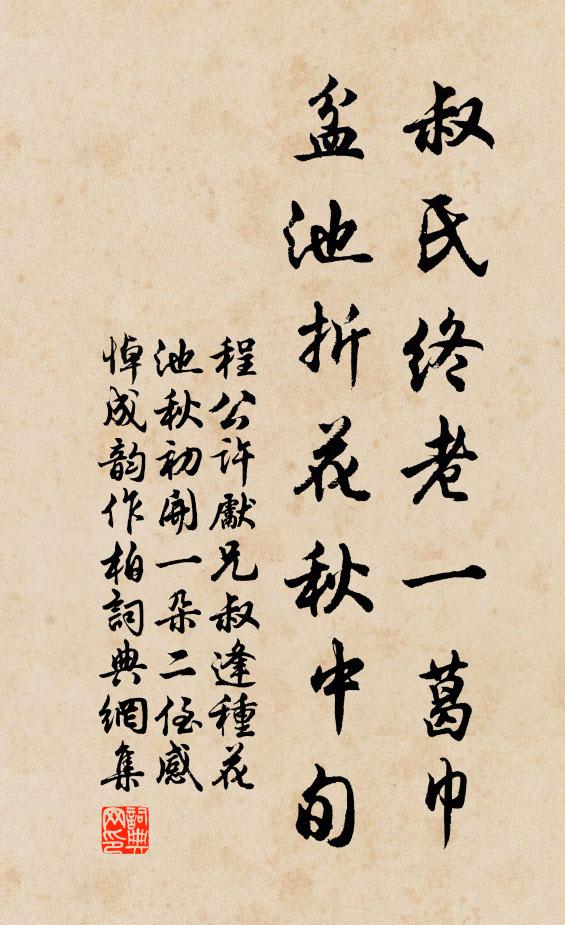 叔氏終老一葛巾
盆池折花秋中旬
程公許獻兄叔逢種花
池秋初開一朵二侄感
悼成韵作柏詞典網集
詞典
网印